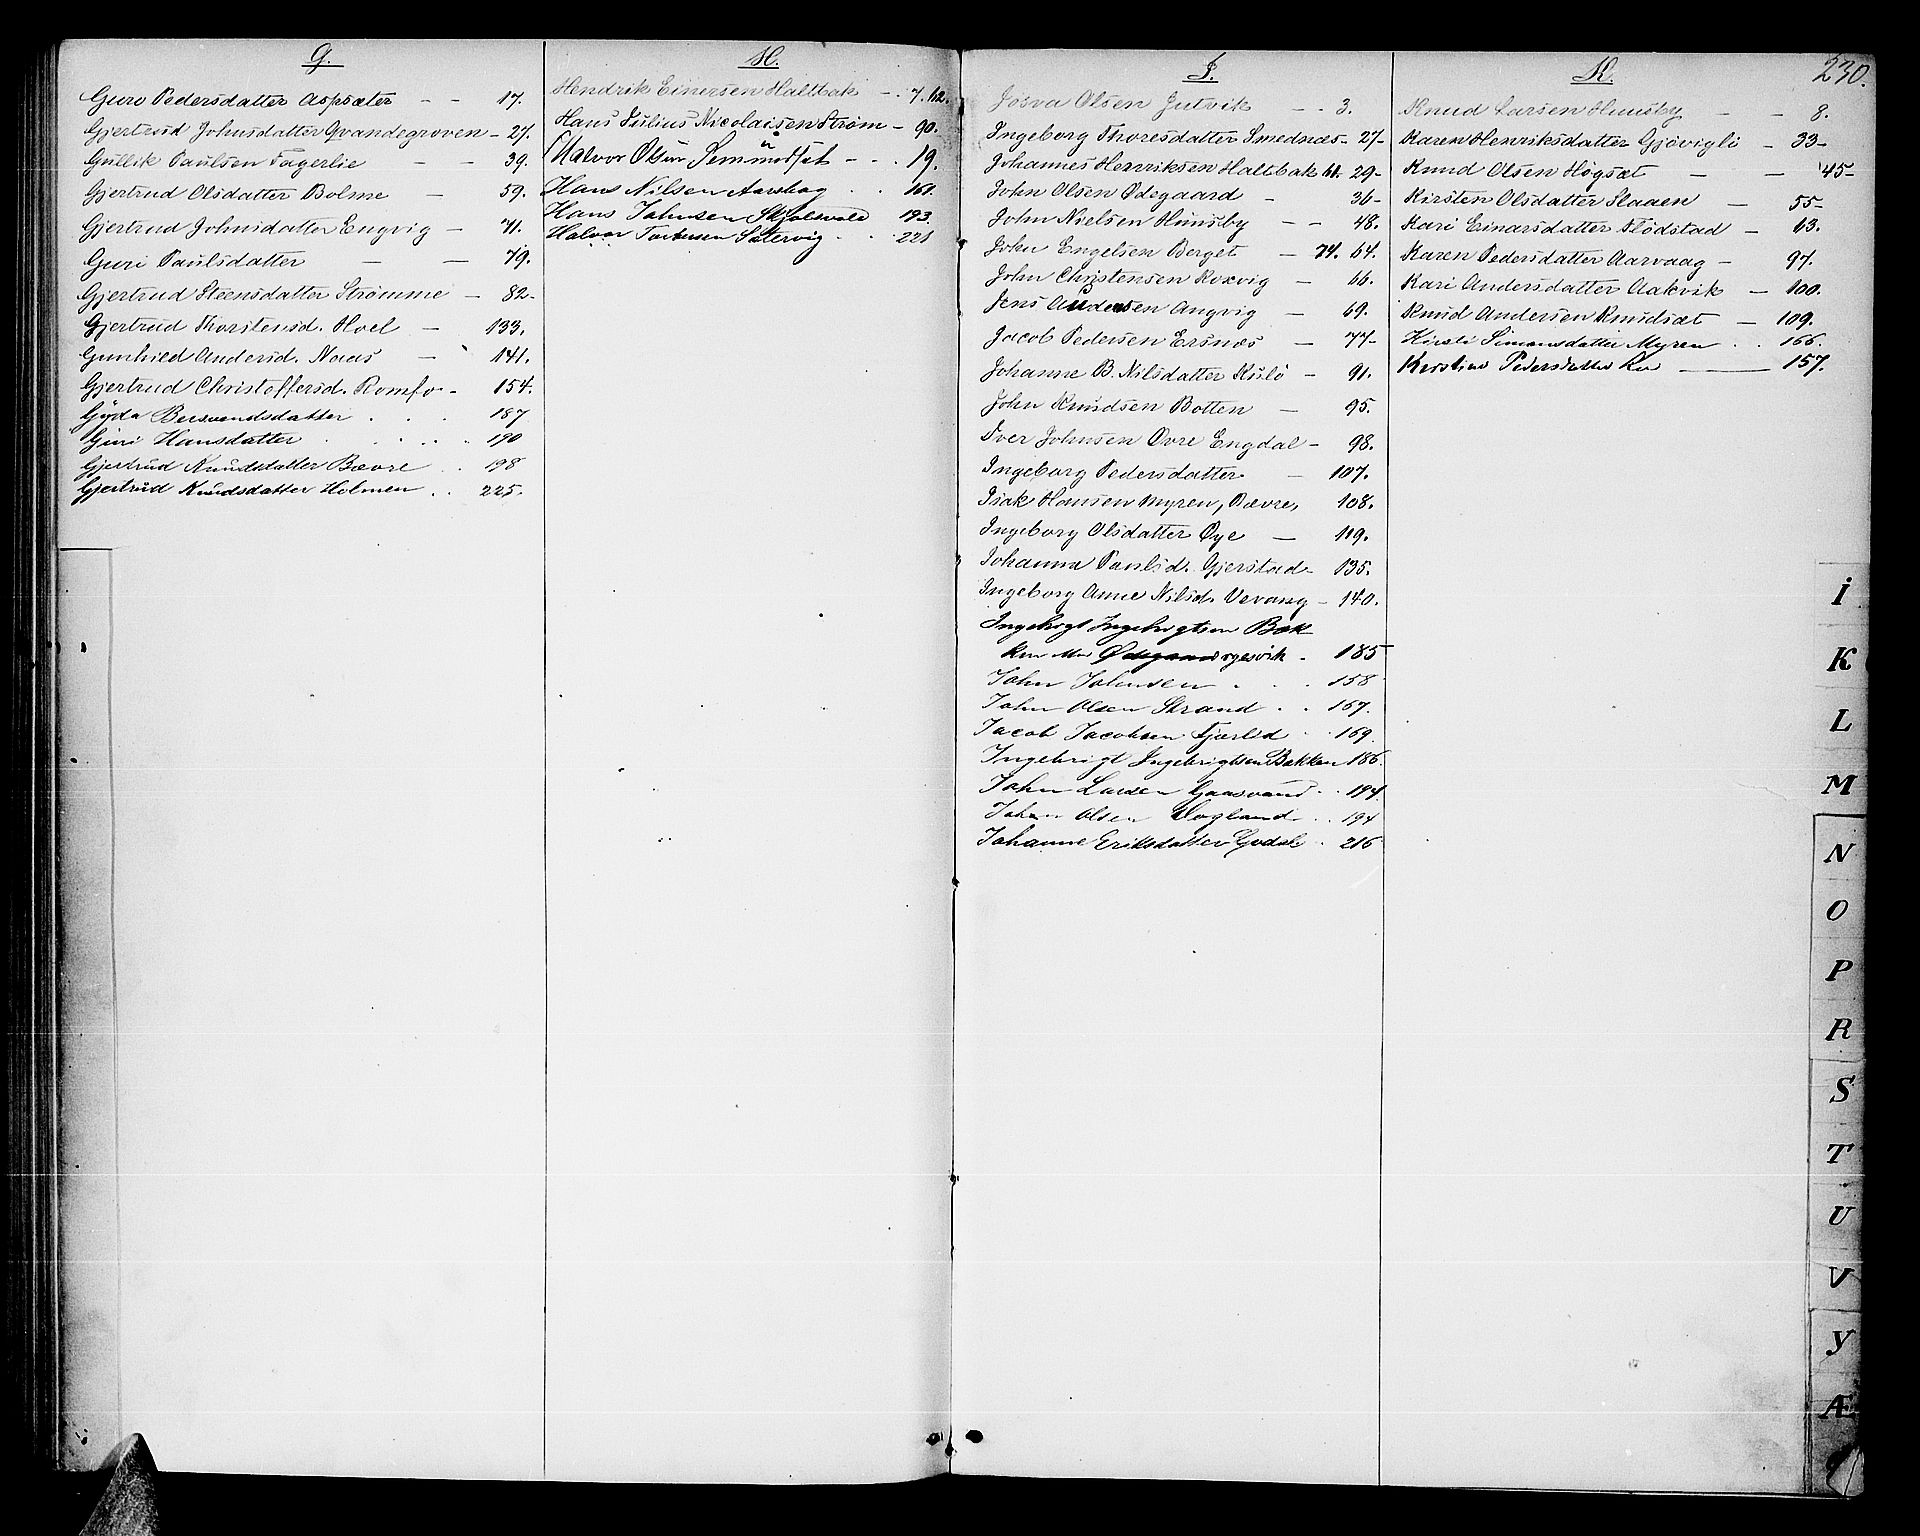 G.
Guro Pedersdatter Aspsæter — — 17.
Gjertrud Johnsdatter Qvandegroven — 27.
Gullik Paulsen Fagerlie — — 39.
Gjertrud Olsdatter Bolme — 59.
Gjertrud Johnsdatter Engvig — 71.
Guri Paulsdatter — — 79.
Gjertrud Steensdatter Strømme — 82-
Gjertrud Thorstensd. Hoel — 133.
Gunhild Andersd. Naas — 141.
Gjertrud Christoffersd. Romfo - 154.
Gjøda Bersvendsdatter . . . 187
Guri Hansdatter . . . . . 190
Gjertrud Knudsdatter Bævre . . 198
Gjertrud Knudsdatter Holmen . . 225.
H.
Hendrik Einersen Haltbak - . 7. 62.
Hans Julius Nicolaisen Strøm — 90.
Halvor Olsen Semundset - . . 19.
Hans Nilsen Aarshog . . 161.
Hans Johnsen Skjølsvold 193.
Halvor Torbersen Sætervig . . 221
I.
Josva Olsen Jutvik — . 3.
Ingeborg Thoresdatter Smednæs - 27-
Johannes Henriksen Haltbak 61. 29-
John Olsen Ødegaard - 36-
John Nielsen Hunsby — — 48.
John Engelsen Berget — 74. 64.
John Christensen Roxvig — 66.
Jens Andersen Angvig — 69.
Jacob Pedersen Ersnæs — 77-
Johanne B. Nilsdatter Kulø — 91.
John Knudsen Botten — 95.
Iver Johnsen Øvre Engdal - 98.
Ingeborg Pedersdatter — 107.
Isak Hansen Myren, Bævre, 108.
Ingeborg Olsdatter Øye — 119.
Johanna Paulsd. Gjerstad - 135.
Ingeborg Anne Nilsd. Vevang - 140.
Ingebrigt Ingebrigtsen Bak
ken 185
John Johnsen . . . 158
John Olsen Strand . . 167.
Jacob Jacobsen Fjærlid . . 169.
Ingebrigt Ingebrigtsen Bakken 186.
John Larsen Gaasvand . . 194.
Johan Olsen Vogland . . 194
Johanne Eriksdatter Godal . 216
K.
230.
Knud Larsen Hunsby — — 8.
Karen Henriksdatter Gjøvigli — 33-
Knud Olsen Høgsæt — — 45-
Kirsten Olsdatter Staaen — 55-
Kari Einarsdatter Flødstad — 63.
Karen Pedersdatter Aarvaag — 97.
Kari Andersdatter Aakvik — 100.
Knud Andersen Knudsæt — 109.
Kirsti Simonsdatter Myren . . 166.
Kirstine Pedersdatter — 157.
I
K
L
M
N
O
P
R
S
T
U
V
Y
Æ